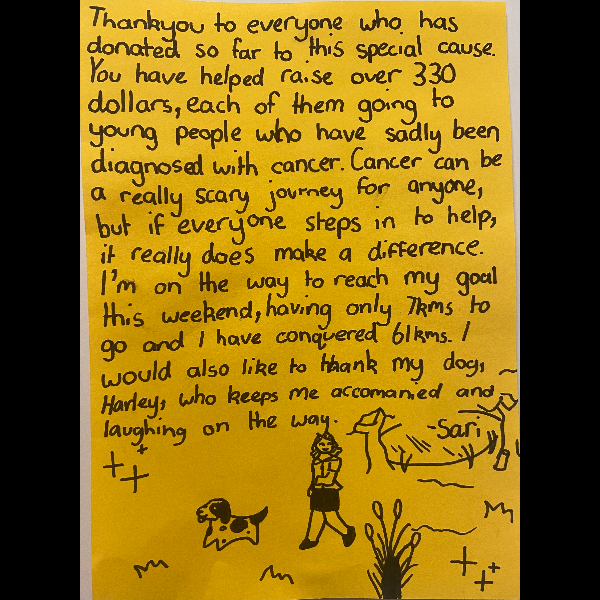 Thankyou to everyone who has
donated so far to this special cause.
You have helped raise over 330
dollars, each of them going to
young people who have sadly been
diagnosed with cancer. Cancer can be
a really scary journey for anyone,
but if everyone steps in to help,
it really does make a difference.
I'm on the way to reach my goal
this weekend, having only 7kms to
go and I have conquered 61kms. I
would also like to thank my dog,
Harley, who keeps me accomanied and
laughing on the way.
-Sari